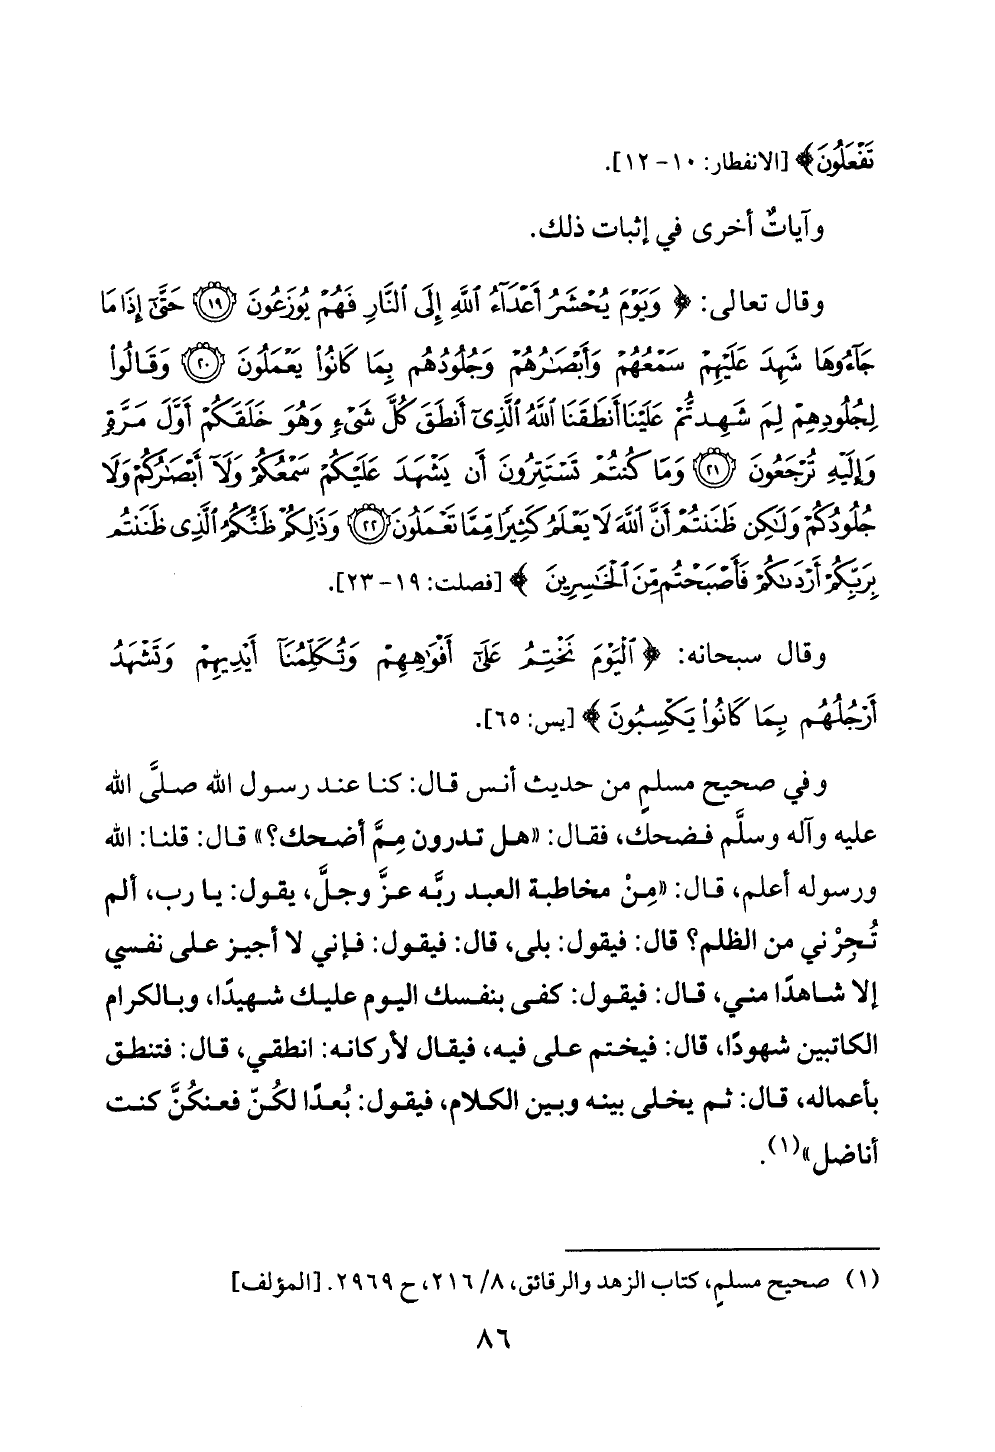 تَفْعَلُونَ﴾ [الانفطار: ١٠- ١٢].
وآياتٌ أخرى في إثبات ذلك.
وقال تعالى: ﴿ وَيَوْمَ يُحْشَرُ أَعْدَآءُ ٱللَّهِ إِلَى ٱلنَّارِ فَهُمْ يُوزَعُونَ ١٩ حَتَّىٰٓ إِذَا مَا
جَآءُوهَا شَهِدَ عَلَيْهِمْ سَمْعُهُمْ وَأَبْصَٰرُهُمْ وَجُلُودُهُم بِمَا كَانُوا۟ يَعْمَلُونَ ٢٠ وَقَالُوا۟
لِجُلُودِهِمْ لِمَ شَهِدتُّمْ عَلَيْنَا أَنطَقَنَا ٱللَّهُ ٱلَّذِىٓ أَنطَقَ كُلَّ شَىْءٍ وَهُوَ خَلَقَكُمْ أَوَّلَ مَرَّةٍ
وَإِلَيْهِ تُرْجَعُونَ ٢١ وَمَا كُنتُمْ تَسْتَتِرُونَ أَن يَشْهَدَ عَلَيْكُمْ سَمْعُكُمْ وَلَآ أَبْصَٰرُكُمْ وَلَا
جُلُودُكُمْ وَلَٰكِن ظَنَنتُمْ أَنَّ ٱللَّهَ لَا يَعْلَمُ كَثِيرًا مِّمَّا تَعْمَلُونَ ٢٢ وَذَٰلِكُمْ ظَنُّكُمُ ٱلَّذِى ظَنَنتُم
بِرَبِّكُمْ أَرْدَىٰكُمْ فَأَصْبَحْتُم مِّنَ ٱلْخَٰسِرِينَ ﴾ [فصلت: ١٩- ٢٣].
وقال سبحانه: ﴿ ٱلْيَوْمَ نَخْتِمُ عَلَىٰٓ أَفْوَٰهِهِمْ وَتُكَلِّمُنَآ أَيْدِيهِمْ وَتَشْهَدُ
أَرْجُلُهُم بِمَا كَانُوا۟ يَكْسِبُونَ ﴾ [يس: ٦٥].
وفي صحيح مسلمٍ من حديث أنس قال: كنا عند رسول الله صلَّى الله
عليه وآله وسلَّم فضحك، فقال: «هل تدرون مِمَّ أضحك؟» قال: قلنا: الله
ورسوله أعلم، قال: «مِنْ مخاطبة العبد ربَّه عزَّ وجلَّ، يقول: يا رب، ألم
تُجِرْني من الظلم؟ قال: فيقول: بلى، قال: فيقول: فإني لا أجيز على نفسي
إلا شاهدًا مني، قال: فيقول: كفى بنفسك اليوم عليك شهيدًا، وبالكرام
الكاتبين شهودًا، قال: فيختم على فيه، فيقال لأركانه: انطقي، قال: فتنطق
بأعماله، قال: ثم يخلى بينه وبين الكلام، فيقول: بُعدًا لكُنّ فعنكُنَّ كنت
أناضل»(١).
(١) صحيح مسلمٍ، كتاب الزهد والرقائق، ٨/ ٢١٦، ح ٢٩٦٩. [المؤلف]
٨٦